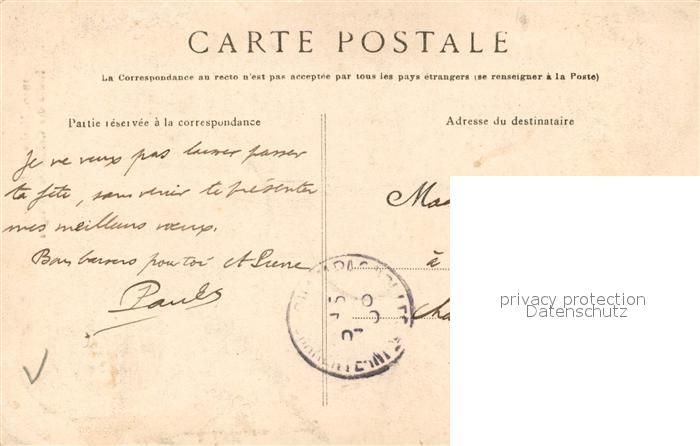 CARTE POSTALE
La Correspondance au recto n'est pas acceptée par tous les pays étrangers (se renseigner à la Poste)
Partie réservée à la correspondance
Adresse du destinataire
Je ne veux pas laisser passer
ta fête, sans venir te présenter
mes meilleurs vœux.
Bons baisers pour toi et Pierre
à
privacy protection
Datenschutz